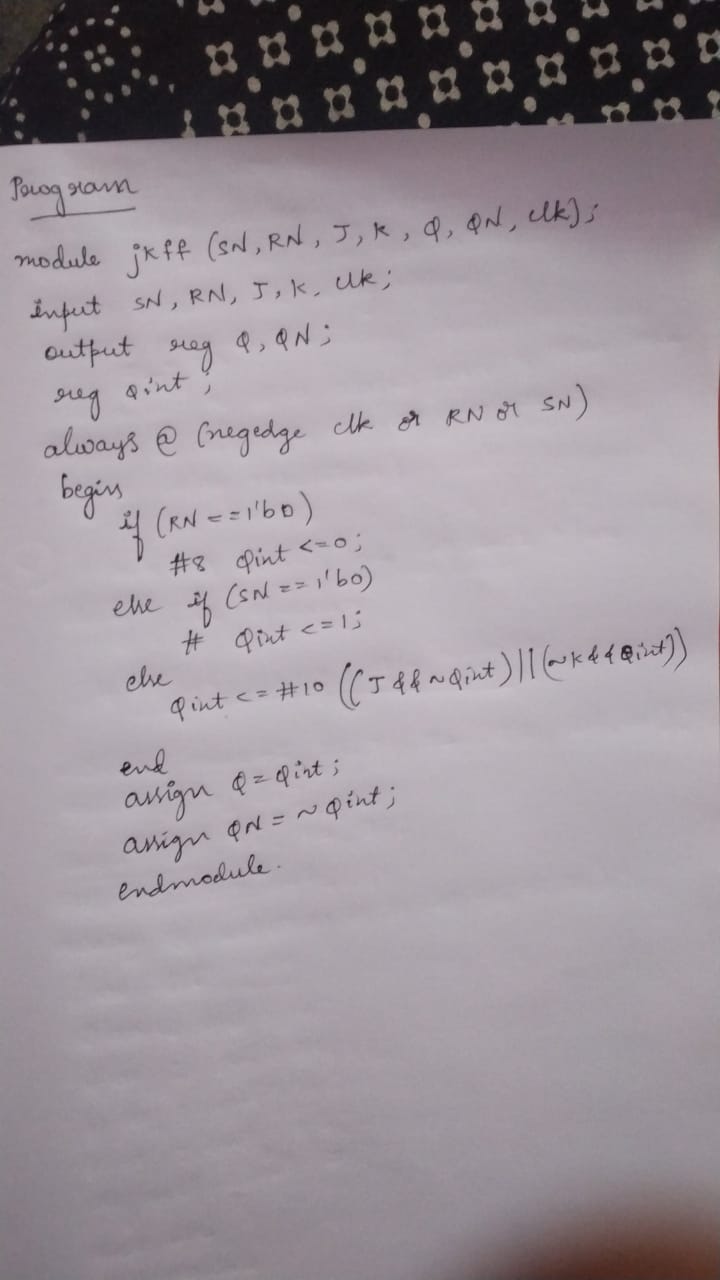 Program
module jkff (SN, RN, J, K, Q, QN, clk);
input SN, RN, J, K, clk;
output reg Q, QN;
reg Qint;
always @ (negedge clk or RN or SN)
begin
if (RN == 1'b0)
#8 Qint <= 0;
else if (SN == 1'b0)
# Qint <= 1;
else
Qint <= #10 ((J && ~Qint) || (~K && Qint))
end
assign Q = Qint;
assign QN = ~Qint;
endmodule.